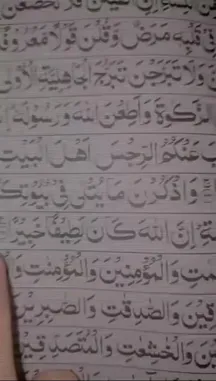 فِي قَلْبِهِ مَرَضٌ وَّقُلْنَ قَوْلًا مَّعْرُوْفًا
وَلَا تَبَرَّجْنَ تَبَرُّجَ الْجَاهِلِيَّةِ الْاُوْلٰى
الزَّكٰوةَ وَاَطِعْنَ اللّٰهَ وَرَسُوْلَهٗ
عَنْكُمُ الرِّجْسَ اَهْلَ الْبَيْتِ
وَاذْكُرْنَ مَا يُتْلٰى فِيْ بُيُوْتِكُنَّ
اِنَّ اللّٰهَ كَانَ لَطِيْفًا خَبِيْرًا
وَالْمُؤْمِنِيْنَ وَالْمُؤْمِنٰتِ وَ
وَالصّٰدِقٰتِ وَالصّٰبِرِيْنَ
وَالْخٰشِعٰتِ وَالْمُتَصَدِّقِيْنَ